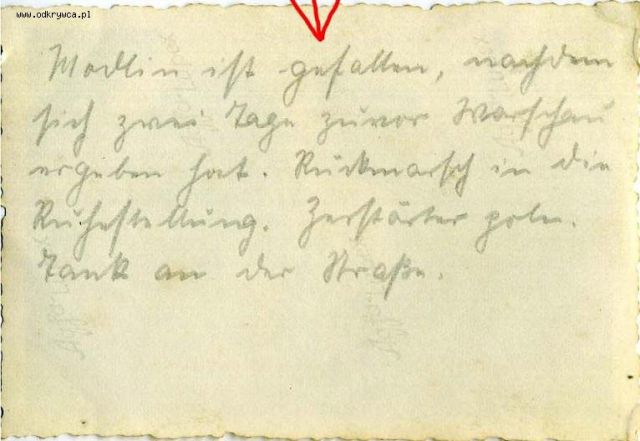 www.odkrywca.pl
Modlin ist gefallen, nachdem
sich zwei Tage zuvor Warschau
ergeben hat. Rückmarsch in die
Ruhestellung. Zerstörter poln.
Tank an der Straße.